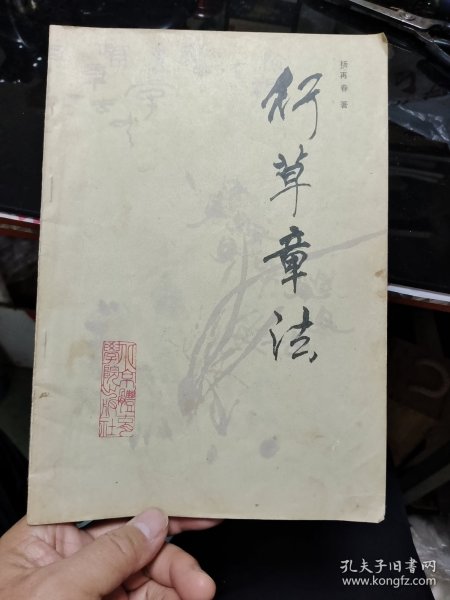 杨再春 著
行草章法
北京體育
學院出版社
孔夫子旧书网
www.kongfz.com